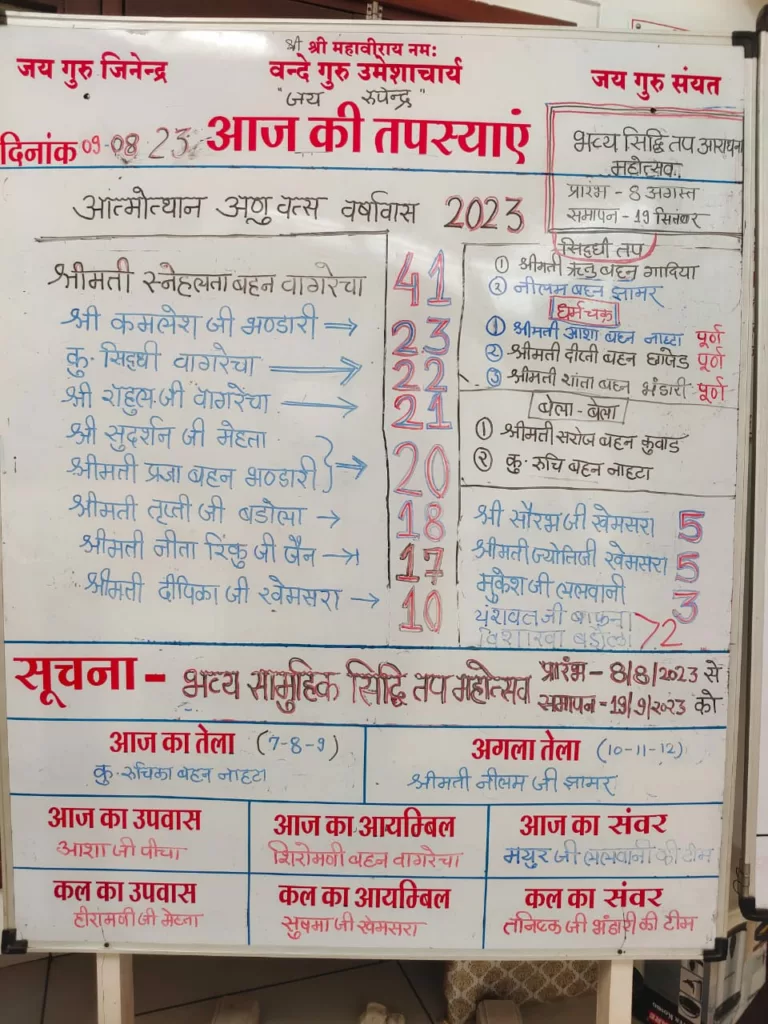 श्री श्री महावीराय नम:
जय गुरु जिनेन्द्र
वन्दे गुरु उमेशाचार्य
जय गुरु संयत
"जय रुपेन्द्र"
दिनांक 09-08 23
आज की तपस्याएं
भव्य सिद्धि तप आराधना
महोत्सव
प्रारंभ - 8 अगस्त
समापन - 19 सितम्बर
आत्मोत्थान अणु वत्स वर्षावास 2023
श्रीमती स्नेहलता बहन वागरेचा 41
श्री कमलेश जी भण्डारी ⇒ 23
कु. सिद्धी वागरेचा ⇒ 22
श्री राहुल जी वागरेचा → 21
श्री सुदर्शन जी मेहता
श्रीमती प्रजा बहन भण्डारी } ⇒ 20
श्रीमती तृप्ती जी बडोला → 18
श्रीमती नीता रिंकु जी जैन → 17
श्रीमती दीपिका जी खेमसरा → 10
सिद्धी तप
① श्रीमती ऋतु बहन गादिया
② नीलम बहन झामर
धर्मचक्र
① श्रीमती आशा बहन नाहटा पूर्ण
② श्रीमती दीप्ती बहन छाजेड पूर्ण
③ श्रीमती शांता बहन भंडारी पूर्ण
बेला - बेला
① श्रीमती सरोज बहन कुवाड
② कु. रुचि बहन नाहटा
श्री सौरभ जी खेमसरा 5
श्रीमती ज्योति जी खेमसरा 5
मुकेश जी ललवानी 3
यशवंत जी बाफना
विशाखा बडोला > 2
सूचना - भव्य सामुहिक सिद्धि तप महोत्सव
प्रारंभ - 8/8/2023 से
समापन - 19/9/2023 को
आज का तेला (7-8-9)
कु. रुचिका बहन नाहटा
अगला तेला (10-11-12)
श्रीमती नीलम जी झामर
आज का उपवास
आशा जी पीचा
आज का आयम्बिल
शिरोमणी बहन वागरेचा
आज का संवर
मयुर जी ललवानी की टीम
कल का उपवास
हीरामणी जी मेहता
कल का आयम्बिल
सुषमा जी खेमसरा
कल का संवर
तनिष्क जी भंडारी की टीम